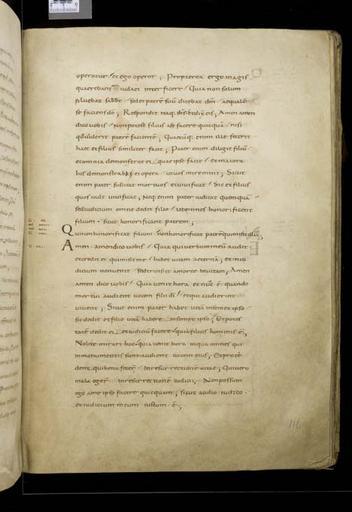 operatur et ego operor; Propterea ergo magis
quaerebant iudaei interficere Quia non solum
soluebat sabb sed et patre suu dicebat dm aequale
se faciens do; Respondit itaq; ihs & dix eis; Amen amen
dico uobis Non potest filius a se facere quicqua nisi
quod uiderit patre faciente Quaecuq; enim ille fecerit
haec et filius similiter facit; Pater enim diligit filiu
et omnia demonstrat ei quae ipse facit et maiora
his demonstrabit ei opera uos miremini; Sicut
enim pater suscitat mortuos et uiuificat Sic et filius
quos uult uiuificat; Neq; enim pater iudicat quemqua
Sed iudiciu omne dedit filio ut omnes honorificent
filium sicut honorificant patrem;
Qui non honorificat filium non honorificat patre qui misit illu
Amen amen dico uobis Quia qui uerbum meu audit
et credit ei qui misit me habet uitam aeterna; et in iu
dicium non uenit sed transiet a morte in uitam; Amen
amen dico uobis Quia uenit hora et nunc e quando
mortui audient uocem filii di et qui audierint
uiuent; Sicut enim pater habet uita in semet ipso
sic dedit et filio uita habere in semet ipso; Et potes
tate dedit ei et iudiciu facere quia filius hominis e;
Nolite mirari hoc quia uenit hora in qua omnes qui
in monumentis sunt audient uocem eius; Et proce
dent qui bona fecer in resurrectione uitae; Qui uero
mala eger in resurrectione iudicii; Non possum
ego a me ipso facere quicquam; sicut audio iudico
et iudicium meum iustum e;